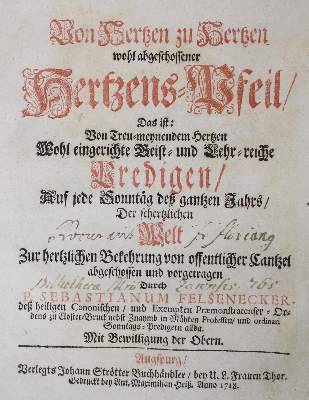 Von Hertzen zu Hertzen
wohl abgeschossener
Hertzens-Pfeil/
Das ist:
Von Treu-meynendem Hertzen
Wohl eingerichte Geist- und Lehr-reiche
Predigen/
Auf jede Sonntäg deß gantzen Jahrs/
Der schertzlichen
Welt
Zur hertzlichen Bekehrung von offentlicher Cantzel
abgeschossen und vorgetragen
Durch
P. SEBASTIANUM FELSENECKER.
deß heiligen Canonischen / und Exempten Præmonstratenser-Or-
dens zu Closter-Bruck nebst Znaymb in Mähren Professen/ und ordinari
Sonntags-Predigern allda.
Mit Bewilligung der Obern.
Augspurg/
Verlegts Johann Strötter Buchhändler/ bey U. L. Frauen Thor.
Gedruckt bey Maximilian Heiß. Anno 1718.